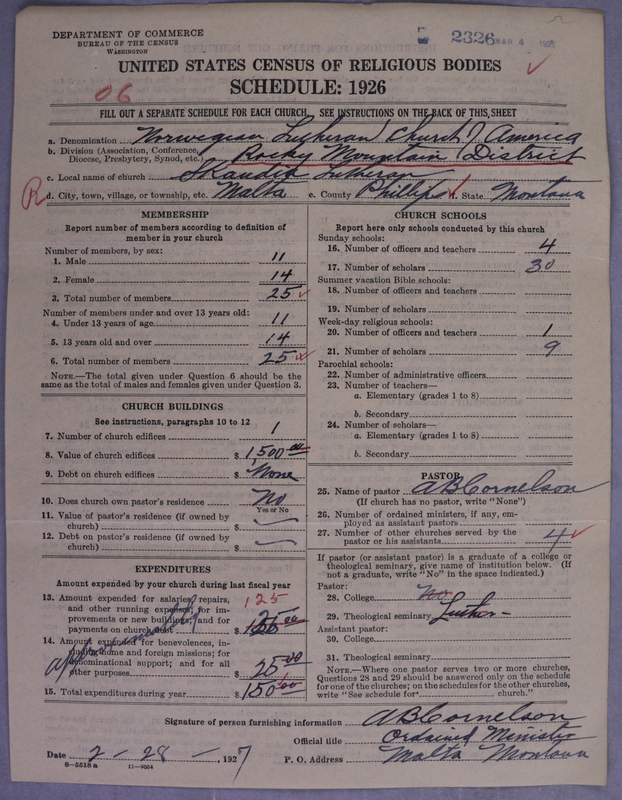 DEPARTMENT OF COMMERCE
BUREAU OF THE CENSUS
WASHINGTON
2326 MAR 4
UNITED STATES CENSUS OF RELIGIOUS BODIES
SCHEDULE: 1926
06
FILL OUT A SEPARATE SCHEDULE FOR EACH CHURCH. SEE INSTRUCTIONS ON THE BACK OF THIS SHEET
a. Denomination Norwegian Lutheran Church of America
b. Division (Association, Conference, Diocese, Presbytery, Synod, etc.) Rocky Mountain District
c. Local name of church Skandia Lutheran
R
d. City, town, village, or township, etc. Malta e. County Phillips f. State Montana
MEMBERSHIP
Report number of members according to definition of
member in your church
Number of members, by sex:
1. Male 11
2. Female 14
3. Total number of members 25
Number of members under and over 13 years old:
4. Under 13 years of age 11
5. 13 years old and over 14
6. Total number of members 25
NOTE.—The total given under Question 6 should be the
same as the total of males and females given under Question 3.
CHURCH BUILDINGS
See instructions, paragraphs 10 to 12
7. Number of church edifices 1
8. Value of church edifices $ 1,500 00
9. Debt on church edifices $ None
10. Does church own pastor's residence No
Yes or No
11. Value of pastor's residence (if owned by
church) $
12. Debt on pastor's residence (if owned by
church) $
EXPENDITURES
Amount expended by your church during last fiscal year
13. Amount expended for salaries, repairs, 125
and other running expenses; for im-
provements or new building; and for
payments on church debt $ 00
14. Amount expended for benevolences, in-
cluding home and foreign missions; for
denominational support; and for all
other purposes $ 25 00
approximately
15. Total expenditures during year $ 150 00
CHURCH SCHOOLS
Report here only schools conducted by this church
Sunday schools:
16. Number of officers and teachers 4
17. Number of scholars 30
Summer vacation Bible schools:
18. Number of officers and teachers
19. Number of scholars
Week-day religious schools:
20. Number of officers and teachers 1
21. Number of scholars 9
Parochial schools:
22. Number of administrative officers
23. Number of teachers—
a. Elementary (grades 1 to 8)
b. Secondary
24. Number of scholars—
a. Elementary (grades 1 to 8)
b. Secondary
PASTOR
25. Name of pastor A B Cornelson
(If church has no pastor, write "None")
26. Number of ordained ministers, if any, em-
ployed as assistant pastors
27. Number of other churches served by the
pastor or his assistants 4
If pastor (or assistant pastor) is a graduate of a college or
theological seminary, give name of institution below. (If
not a graduate, write "No" in the space indicated.)
Pastor:
28. College No
29. Theological seminary Luther
Assistant pastor:
30. College
31. Theological seminary
NOTE.—Where one pastor serves two or more churches,
Questions 28 and 29 should be answered only on the schedule
for one of the churches; on the schedules for the other churches,
write "See schedule for church."
Signature of person furnishing information A B Cornelson
Official title Ordained Minister
Date 2-28-, 1927 P. O. Address Malta Montana
8-5518 a 11-9064